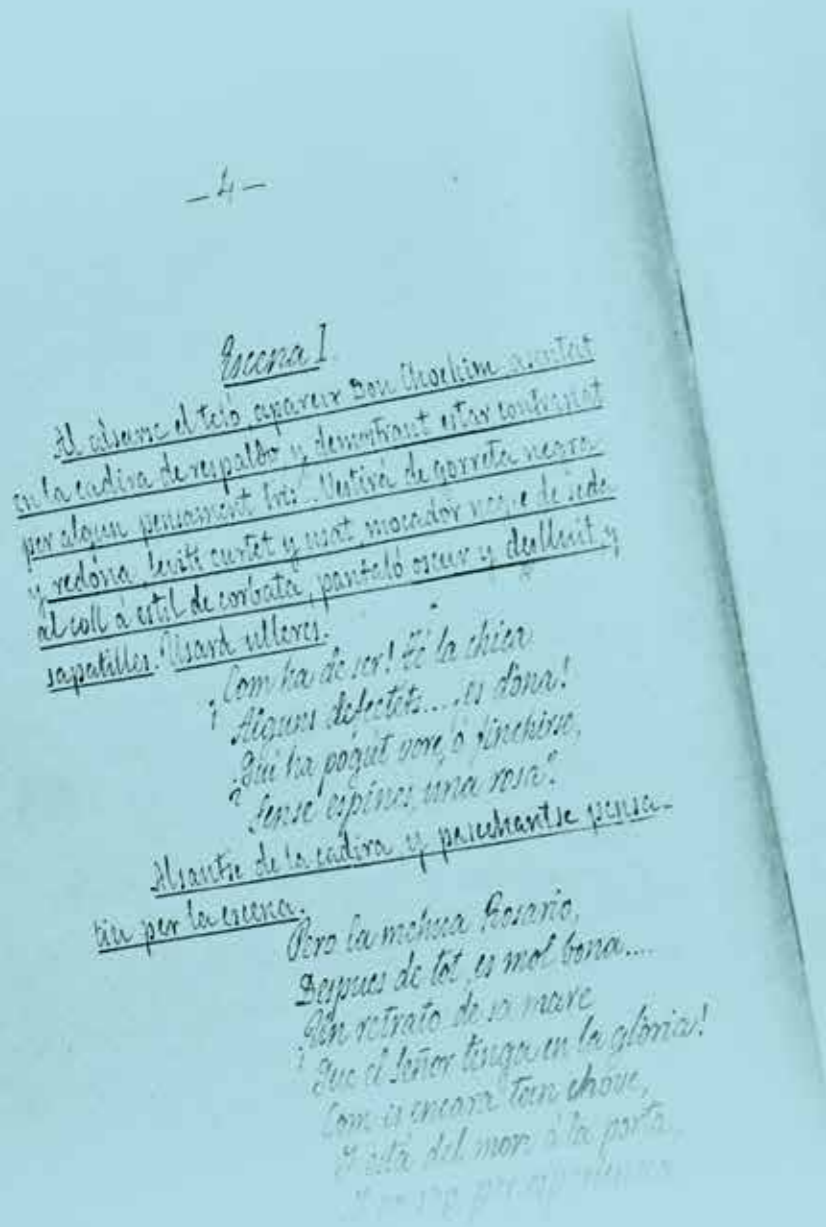 — 4 —
Escena I.
Al alsarse el teló, apareix Don Chochim asentat
en la cadira de respaldo y demostrant estar contrastat
per algun pensament tris. Vestirá de gorreta negra
y redóna, levita curtet y usat, mocador negre de seda
al coll á estil de corbata, pantaló oscur y deslluit y
sapatilles. Usará ulleres.
¡Com ha de ser! Té la chica
Alguns defectets.... es dona!
¿Qui ha pogut vore, ó finchirse,
Sense espines, una rosa?
Alsantse de la cadira y pasechantse pensa-
tiu per la escena.
Pero la mehua Rosario,
Despues de tot, es mol bona....
Un retrato de sa mare
¡Que el Señor tinga en la glória!
Com is encara tan chove,
Y está del mon á la porta,